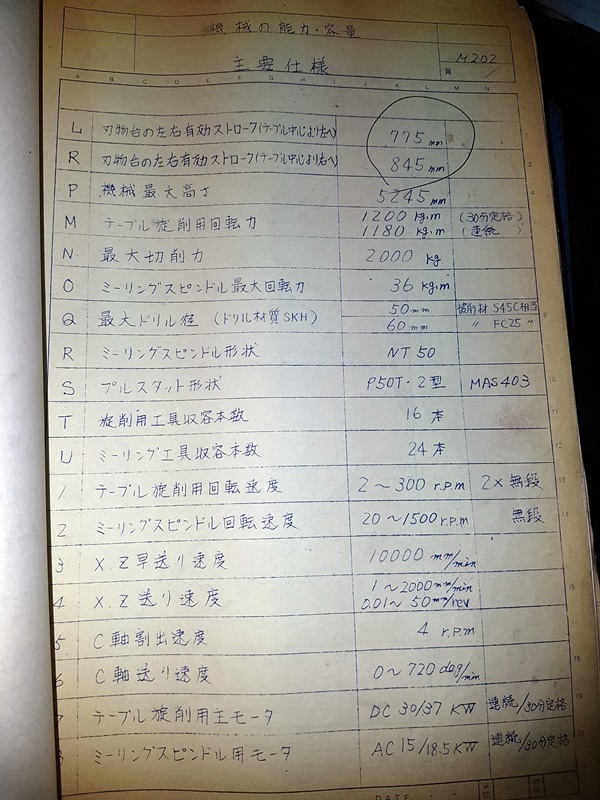 機械の能力・容量
主要仕様
M202
頁 1
A B C D E F G H I J K L M N
L 刃物台の左右有効ストローク(テーブル中心より左へ) 775mm
R 刃物台の左右有効ストローク(テーブル中心より右へ) 845mm
P 機械最大高さ 5245mm
M テーブル旋削用回転力 1200 kg.m (30分定格)
1180 kg.m (連続)
N 最大切削力 2000 kg
O ミーリングスピンドル最大回転力 36 kg.m
Q 最大ドリル径 (ドリル材質SKH) 50mm 被削材 S45C相当
60mm 〃 FC25 〃
R ミーリングスピンドル形状 NT50
S プルスタット形状 P50T・2型 MAS403
T 旋削用工具収容本数 16本
U ミーリング工具収容本数 24本
1 テーブル旋削用回転速度 2〜300 r.p.m 2× 無段
2 ミーリングスピンドル回転速度 20〜1500 r.p.m 無段
3 X.Z早送り速度 10000 mm/min
4 X.Z送り速度 1〜2000mm/min
0.01〜50mm/rev
5 C軸割出速度 4 r.p.m
6 C軸送り速度 0〜720 deg/min
7 テーブル旋削用主モータ DC 30/37 KW 連続/30分定格
8 ミーリングスピンドル用モータ AC 15/18.5KW 連続/30分定格
DATE